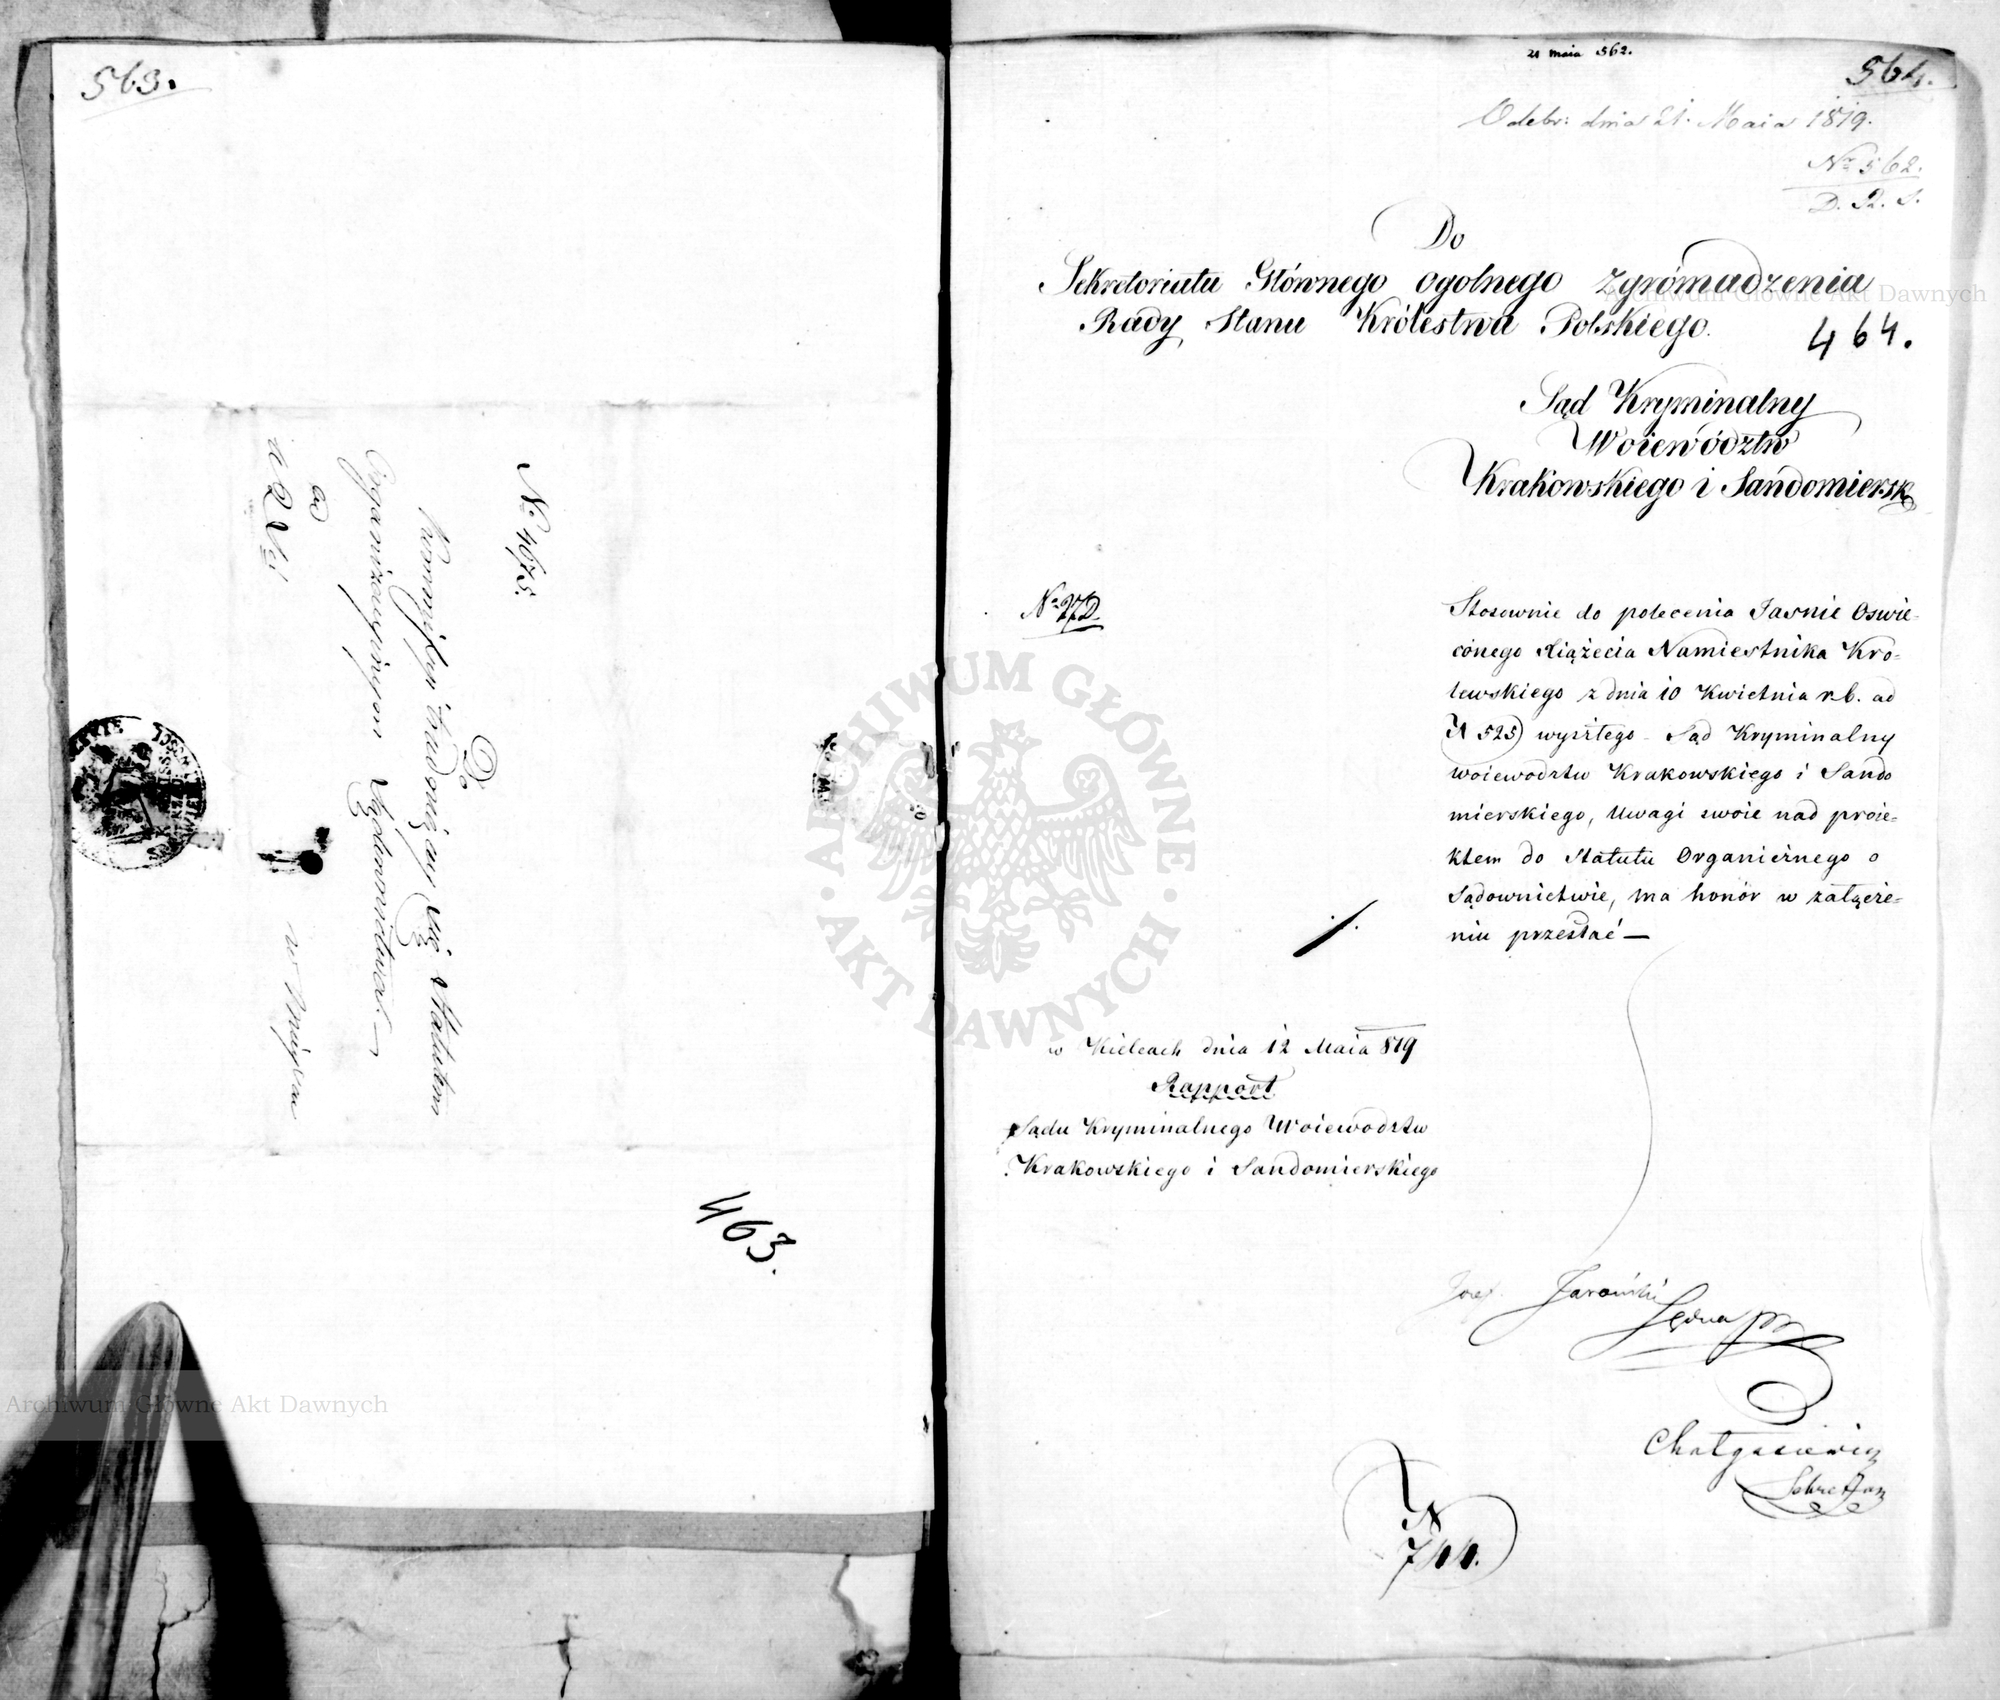 563.
No 4675.
Do
Kommissyi trudniącey się Statutem
Organizacyinym Sądownictwa.
w Mieyscu
463.
21 Maia 562.
564.
Odebr: dnia 21. Maia 1819.
No 562.
Do
Sekretariatu Głównego ogolnego zgromadzenia
Rady Stanu Królestwa Polskiego.
464.
Sąd Kryminalny
Woiewództw
Krakowskiego i Sandomiersk
Stosownie do polecenia Jasnie Oswie-
conego Xiążecia Namiestnika Kro-
lewskiego z dnia 10 Kwietnia r.b. ad
N 525) wyszłego - Sąd Kryminalny
woiewodztw Krakowskiego i Sando
mierskiego, Uwagi swoie nad proie-
ktem do Statutu Organicznego o
Sądownictwie, ma honór w załącze-
niu przesłać —
w Kielcach dnia 12 Maia 819
Rapport
Sądu Kryminalnego Woiewodztw
Krakowskiego i Sandomierskiego
Jaroński
Sędzia
Sekretarz
N
744.
Archiwum Główne Akt Dawnych
ARCHIWUM GŁÓWNE · AKT DAWNYCH ·
Archiwum Główne Akt Dawnych